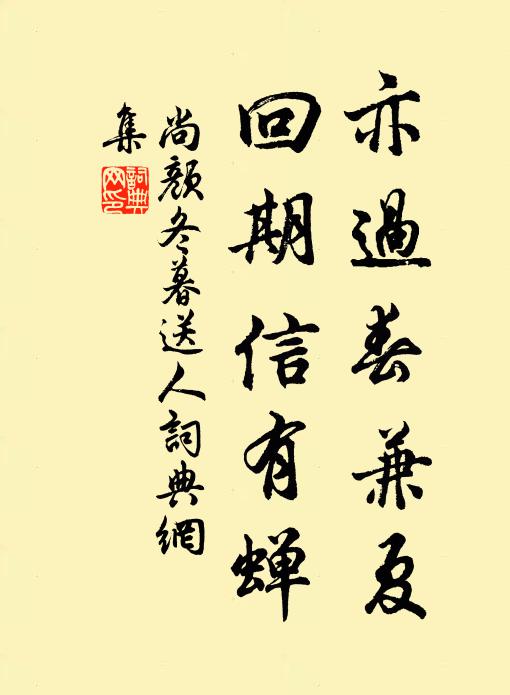 亦過春兼夏
回期信有蝉
尚顏冬暮送人詞典網
集
詞典
网印